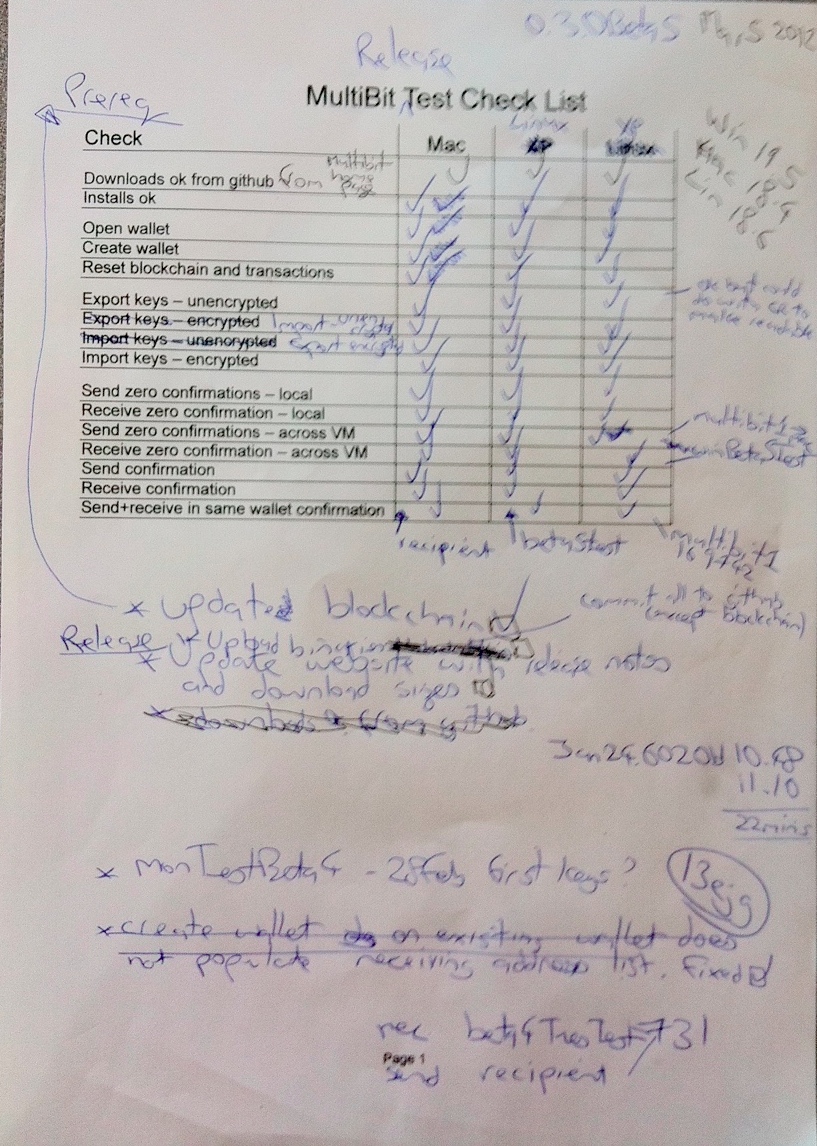 0.3.0Beta5 Mar 5 2012
Release
Prereq
MultiBit Test Check List
Linux XP
Check Mac XP Linux
Win 19.5
Mac 18.4
Lin 18.6
Downloads ok from github from multibit home page
Installs ok
Open wallet
Create wallet
Reset blockchain and transactions
Export keys – unencrypted
Export keys – encrypted Import unencrypted
Import keys – unencrypted Export encrypted
Import keys – encrypted
Send zero confirmations – local
Receive zero confirmation – local
Send zero confirmations – across VM
Receive zero confirmation – across VM
Send confirmation
Receive confirmation
Send+receive in same wallet confirmation
recipient beta5test multibit1
* Updated blockchain
commit all to github
(except blockchain)
Release * Upload binaries
* Update website with release notes
and download sizes
* downloads from github
10.48
11.10
22mins
* monTestBeta4 - 28Feb first keys?
* create wallet on existing wallet does
not populate receiving address list. Fixed
rec
Page 1
send recipient